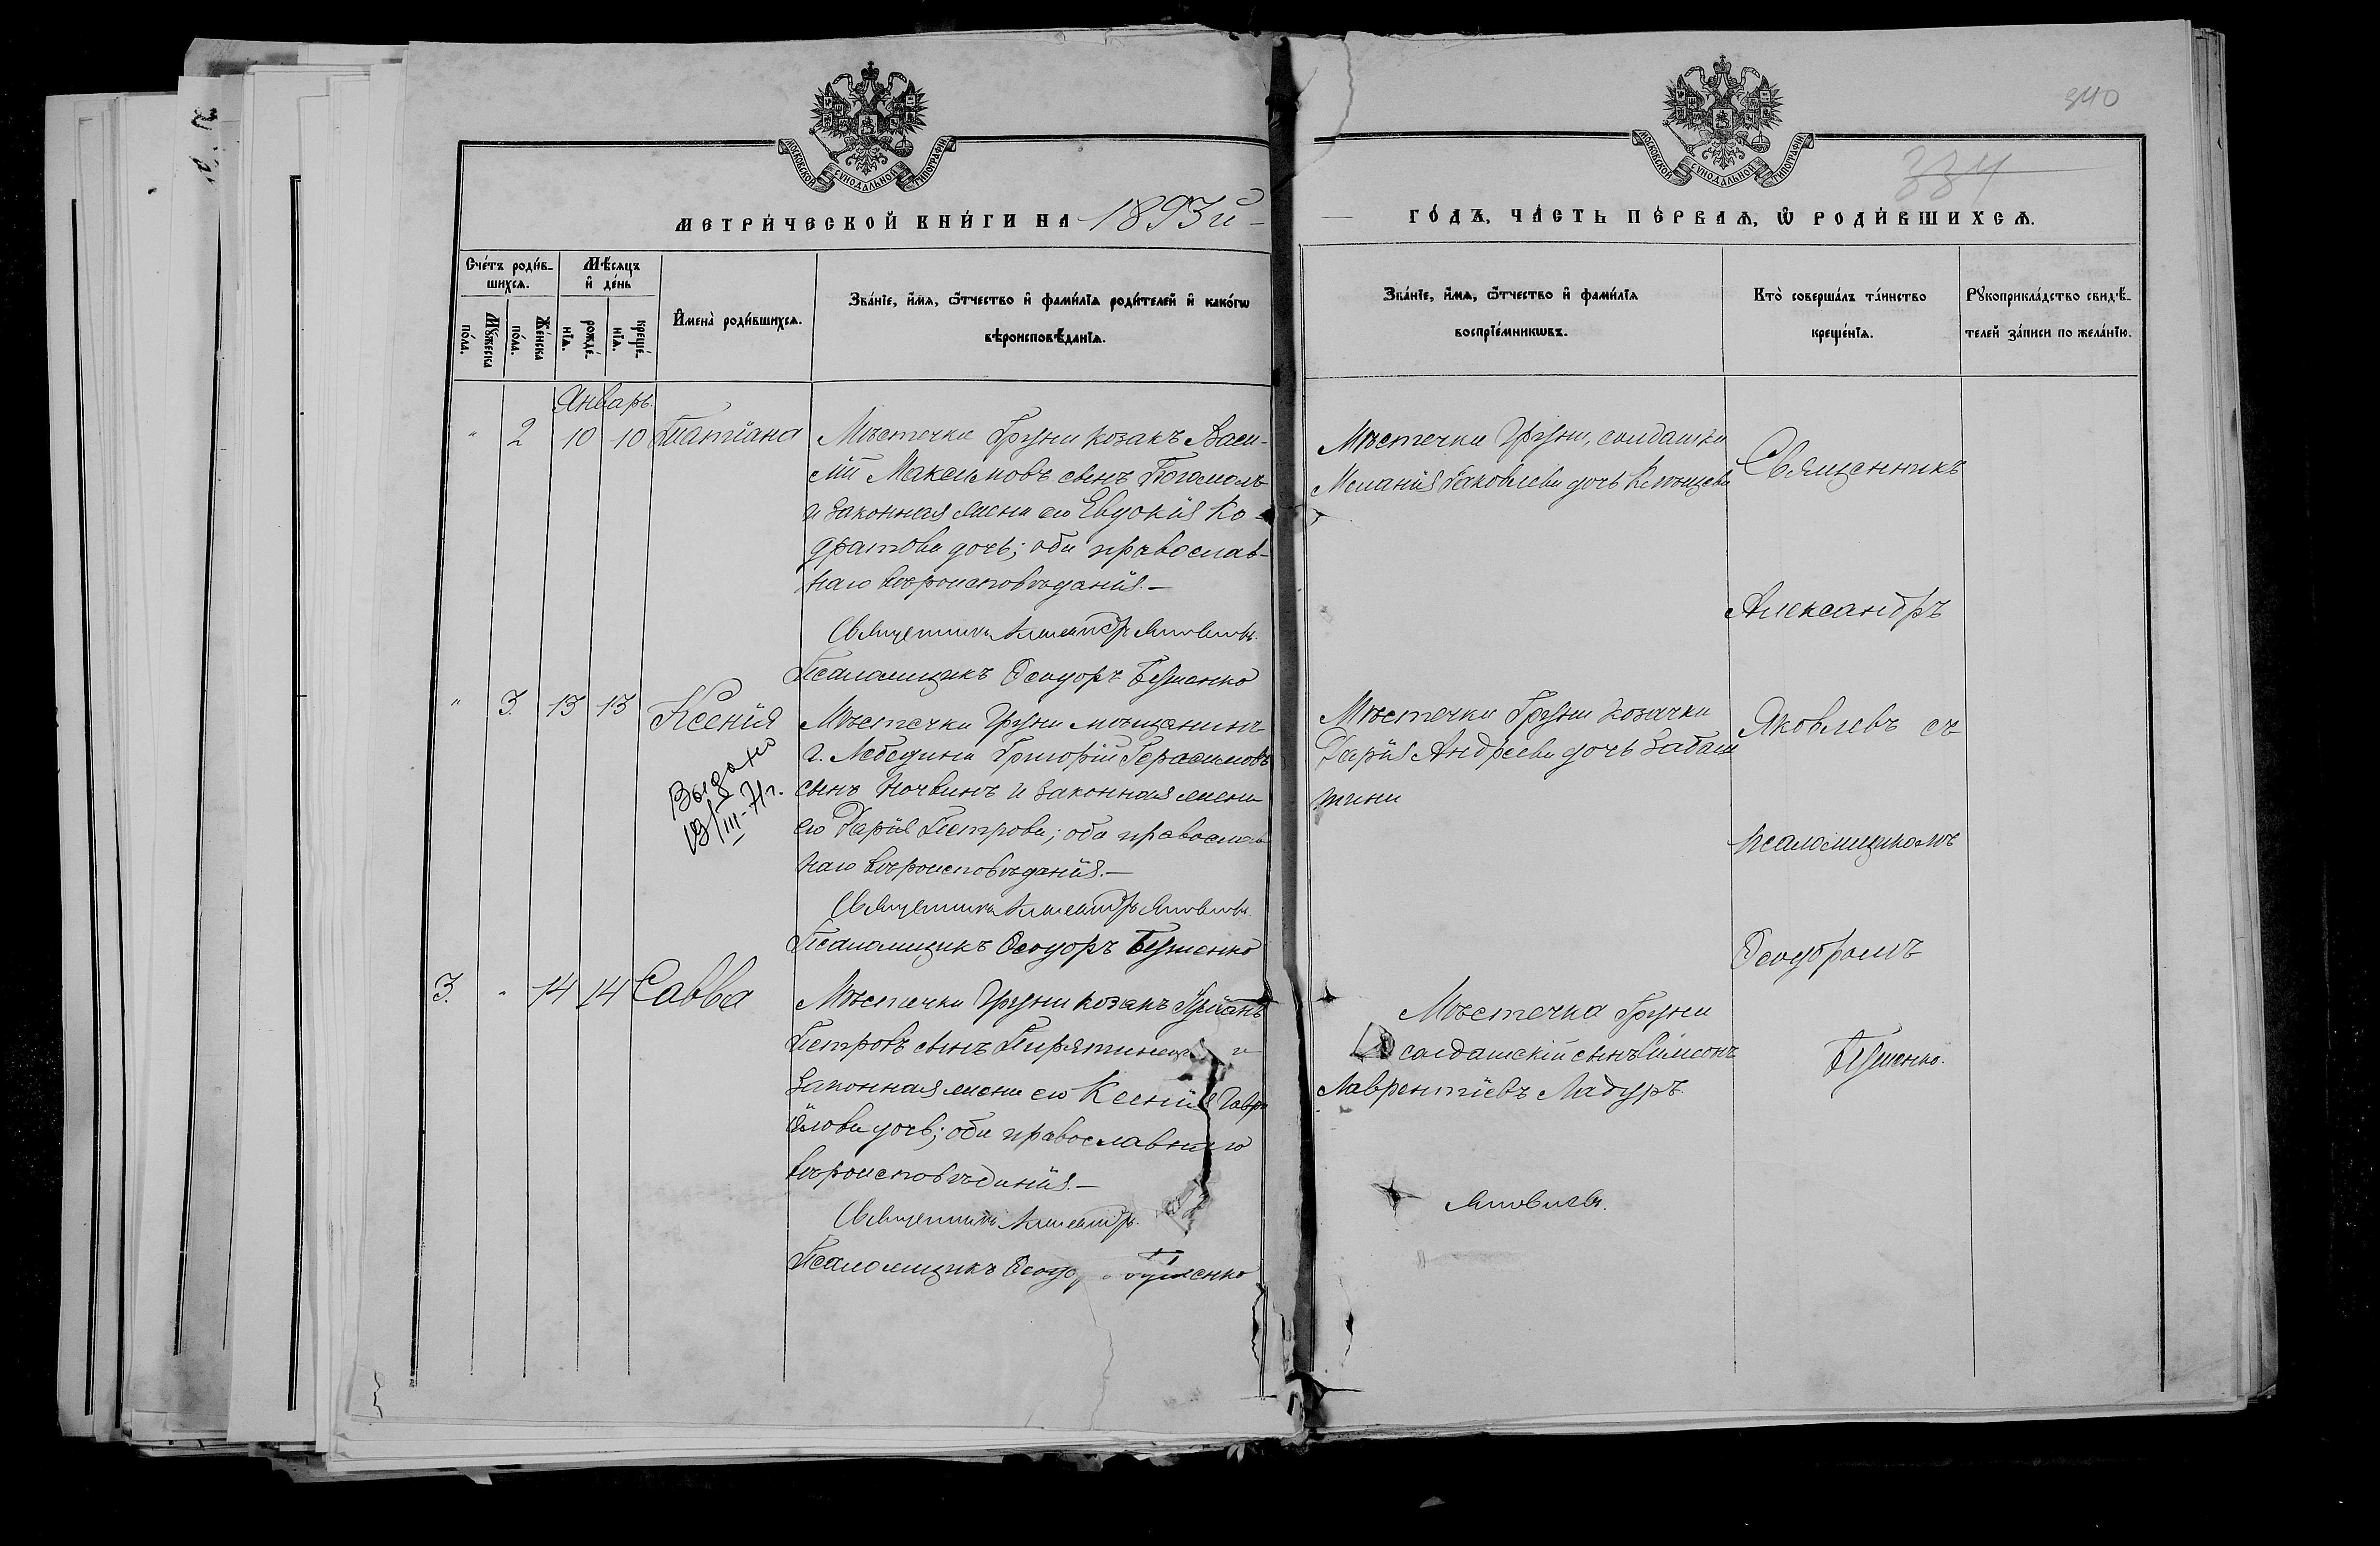 340
334
МОСКОВСКОЙ СѴНОДАЛЬНОЙ ТИПОГРАФІИ
МЕТРИ́ЧЕСКОЙ КНИ́ГИ НА 1893й
МОСКОВСКОЙ СѴНОДАЛЬНОЙ ТИПОГРАФІИ
ГО́ДЪ, ЧА́СТЬ ПЕ́РВАѦ, Ѡ҆ РОДИ́ВШИХСѦ.
Сче́тъ роди́в-
шихсѧ.
Мꙋ́жеска
по́ла.
Же́нска
по́ла.
Мѣ́сѧцъ
и҆ де́нь
рожде́-
нїѧ.
креще́-
нїѧ.
И҆мена̀ роди́вшихсѧ.
Зва́нїе, и҆́мѧ, ѻ҆́тчество и҆ фами́лїѧ роди́телей и҆ како́гѡ
вѣроисповѣ́данїѧ.
Зва́нїе, и҆́мѧ, ѻ҆́тчество и҆ фами́лїѧ
воспрїе́мникѡвъ.
Кто̀ соверша́лъ та́инство
креще́нїѧ.
Рꙋкоприкла́дство свидѣ́-
телей за́писи по жела́нїю.
Январь.
" 2 10 10 Татіана
Мѣстечка Груни козакъ Васи-
лій Максимовъ сынъ Богомолъ
и законная жена его Евдокія Ко-
дратова дочь; оба православ-
наго вѣроисповѣданія.—
Священникъ Александръ Яковлевъ.
Псаломщикъ Ѳеодоръ Бутенко
Мѣстечка Груни, солдатка
Меланія Яковлева дочь
Священникъ
Александръ
Яковлевъ съ
псаломщикомъ
Ѳеодоромъ
Бутенко.
" 3. 13 13 Ксенія
Выдано
19/III-71г.
Мѣстечка Груни мѣщанинъ
г. Лебедина Григорій Герасимовъ
сынъ Ночвинъ и законная жена
его Дарія Петрова; оба православ
наго вѣроисповѣданія.—
Священникъ Александръ Яковлевъ.
Псаломщикъ Ѳеодоръ Бутенко
Мѣстечка Груни козачка
Дарія Андреева дочь Забаш
тина
3. " 14 14 Савва
Мѣстечка Груни козакъ
Петровъ сынъ Пирятинецъ и
законная жена его Ксенія Гавры
илова дочь; оба православнаго
вѣроисповѣданія.—
Священникъ Александръ
Псаломщикъ Ѳеодо Бутенко
Мѣстечка Груни
солдатскій сынъ Симеонъ
Лаврентіевъ Ладуръ.
Яковлевъ.